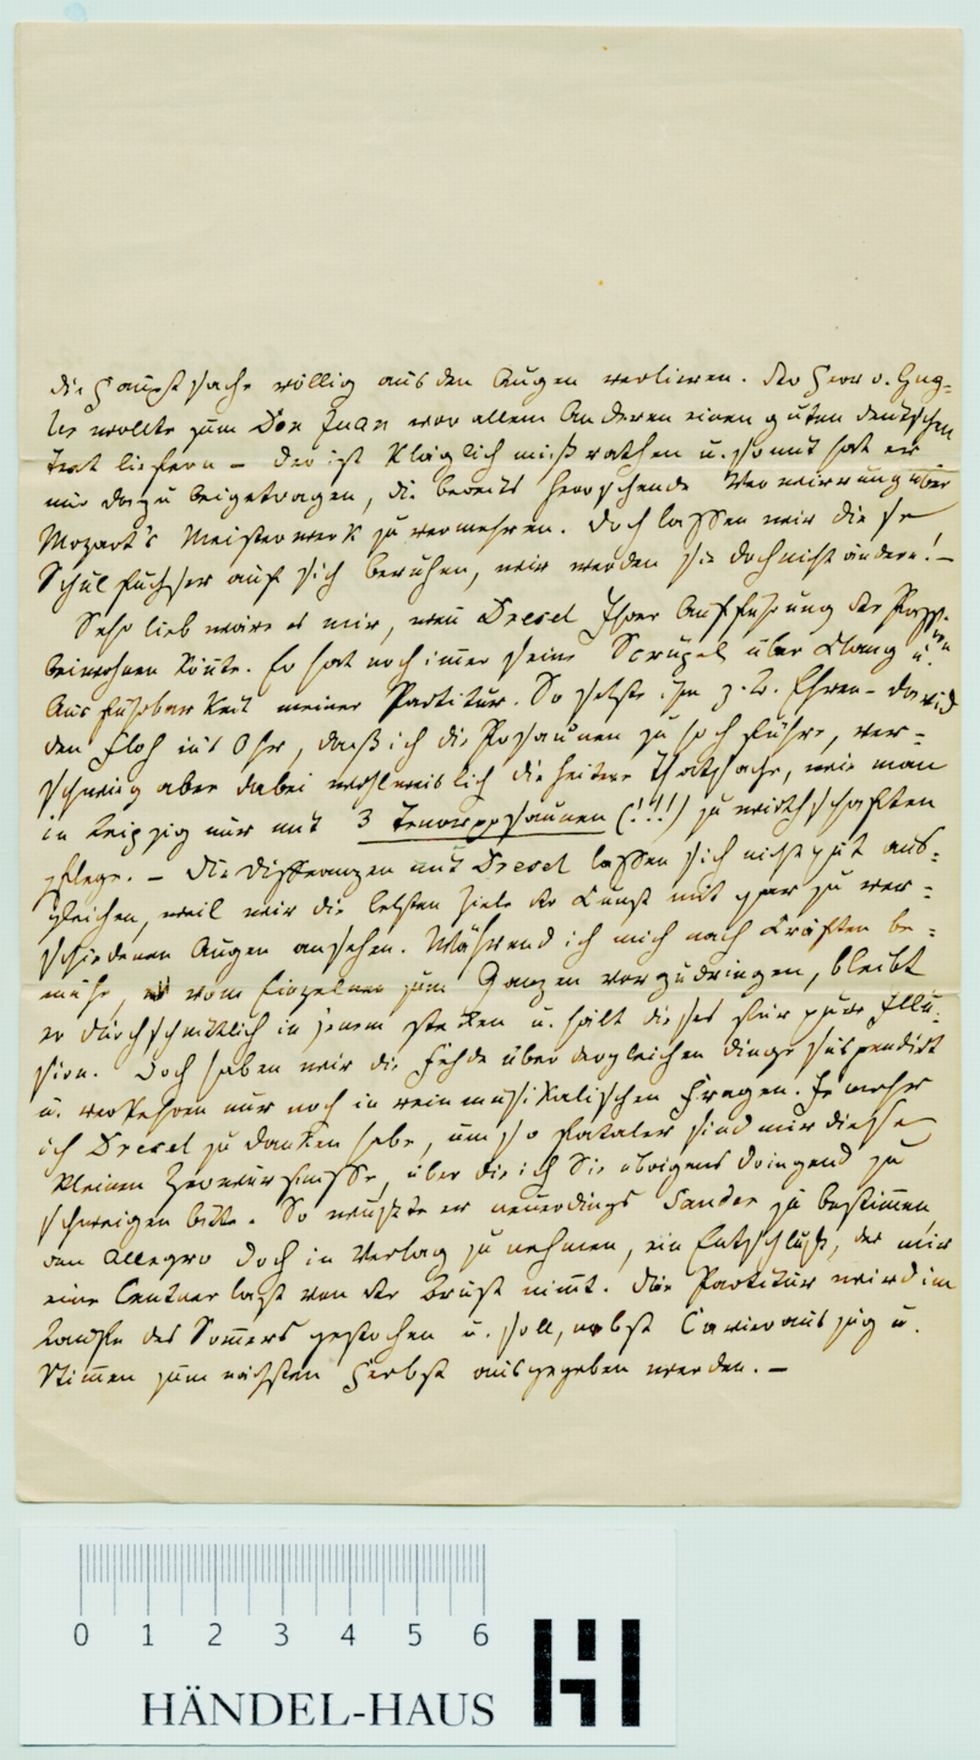 die Hauptsache völlig aus den Augen verlieren. Der Herr v. Gug-
ler wollte zum Don Juan vor allem Anderen einen guten deutschen
Text liefern – der ist kläglich mißrathen u. somit hat er
nur dazu beigetragen, die bereits herrschende Verwirrung über
Mozart's Meisterwerk zu vermehren. Doch lassen wir diese
Schulfuchser auf sich beruhen, wir werden sie doch nicht ändern! –
Sehr lieb wäre es mir, wen̄ Dresel Ihrer Aufführung der Passion
beiwohnen kön̄te. Er hat noch im̄er seine Scrupel über Klang u.
Ausführbarkeit meiner Partitur. So setzte ihm z. B. Ehren-David
den Floh ins Ohr, daß ich die Posaunen zu hoch führe, ver-
schwieg aber dabei wohlweislich die heitere Thatsache, wie man
in Leipzig nur mit 3 Tenorposaunen (!!!) zu wirthschaften
pflege. – Die Differenzen mit Dresel lassen sich nicht gut aus-
gleichen, weil wir die letzten Ziele der Kunst mit gar zu ver-
schiedenen Augen ansehen. Während ich mich nach Kräften be-
mühe, vom Einzelnen zum Ganzen vorzudringen, bleibt
er durchschnittlich in jenem stecken u. hält dieses für pure Illu-
sion. Doch haben wir die Fehde über dergleichen Dinge suspendirt
u. verkehren nur noch in rein musikalischen Fragen. Je mehr
ich Dresel zu danken habe, um so fataler sind mir diese
kleinen Zerwürfnisse, über die ich Sie übrigens dringend zu
schweigen bitte. So wußte er neuerdings Sander zu bestim̄en,
den Allegro doch in Verlag zu nehmen, ein Entschluß, der mir
eine Centnerlast von der Brust nim̄t. Die Partitur wird im
Laufe des Som̄ers gestochen u. soll, nebst Clavierauszug u.
Stim̄en zum nächsten Herbst ausgegeben werden. –
0 1 2 3 4 5 6
HÄNDEL-HAUS